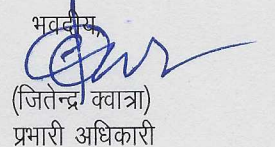 भवदीय,
(जितेन्द्र क्वात्रा)
प्रभारी अधिकारी